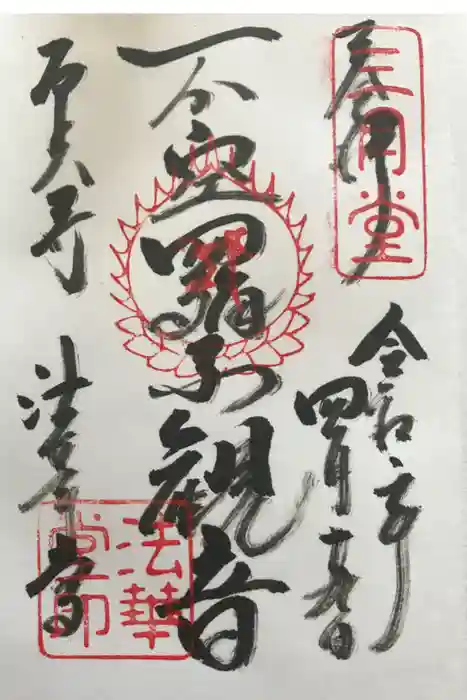 奉拝
三月堂
令和
四月
日
不空羂索観音
東大寺 法華堂
法華堂印